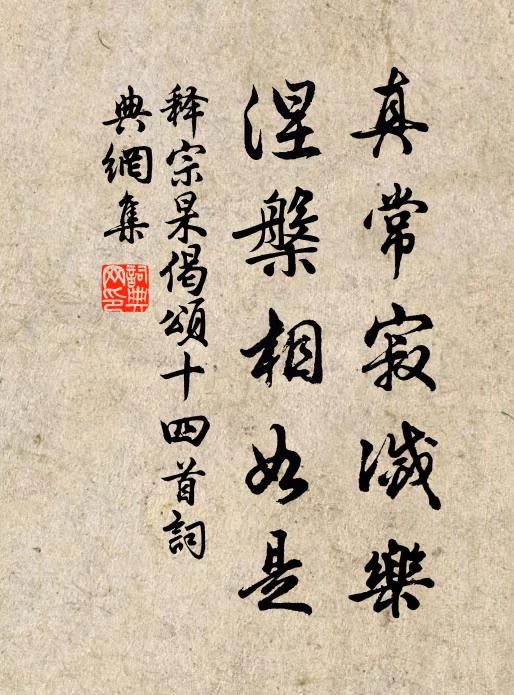 真常寂滅樂
涅槃相如是
释宗杲偈頌十四首詞
典網集
詞典網印